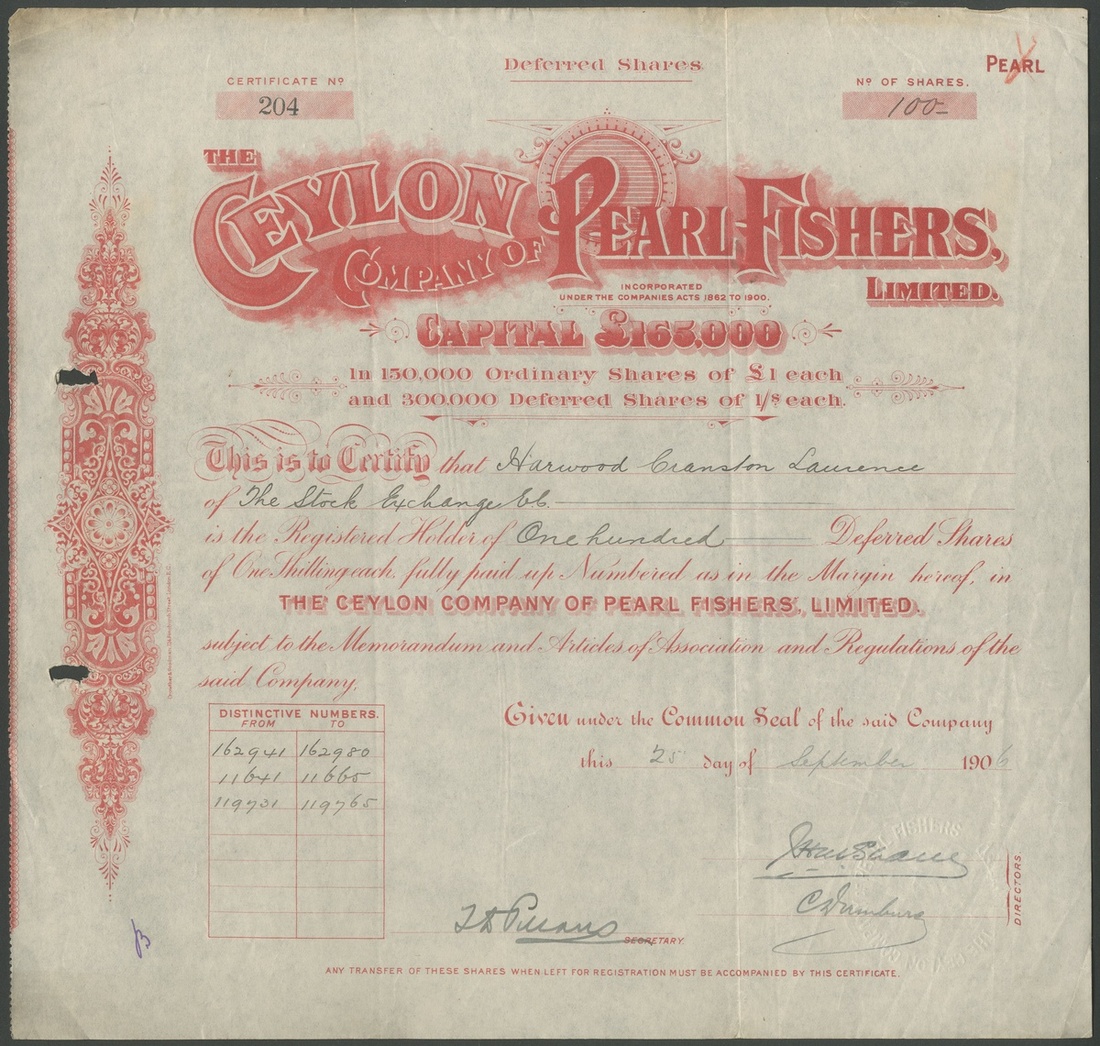 Deferred Shares
CERTIFICATE Nº
204
Nº OF SHARES.
100-
PEARL
THE
CEYLON
COMPANY OF
PEARL FISHERS,
LIMITED.
INCORPORATED
UNDER THE COMPANIES ACTS 1862 TO 1900.
CAPITAL £165,000
In 150,000 Ordinary Shares of £1 each
and 300,000 Deferred Shares of 1/s each.
This is to Certify that Harwood Cranston Laurence
of The Stock Exchange E.C.
is the Registered Holder of One hundred Deferred Shares
of One Shilling each, fully paid up Numbered as in the Margin hereof, in
THE CEYLON COMPANY OF PEARL FISHERS, LIMITED.
subject to the Memorandum and Articles of Association and Regulations of the
said Company.
DISTINCTIVE NUMBERS.
FROM TO
162941 162980
11641 11665
119731 119765
Given under the Common Seal of the said Company
this 25 day of September 1906
DIRECTORS
SECRETARY.
ANY TRANSFER OF THESE SHARES WHEN LEFT FOR REGISTRATION MUST BE ACCOMPANIED BY THIS CERTIFICATE.